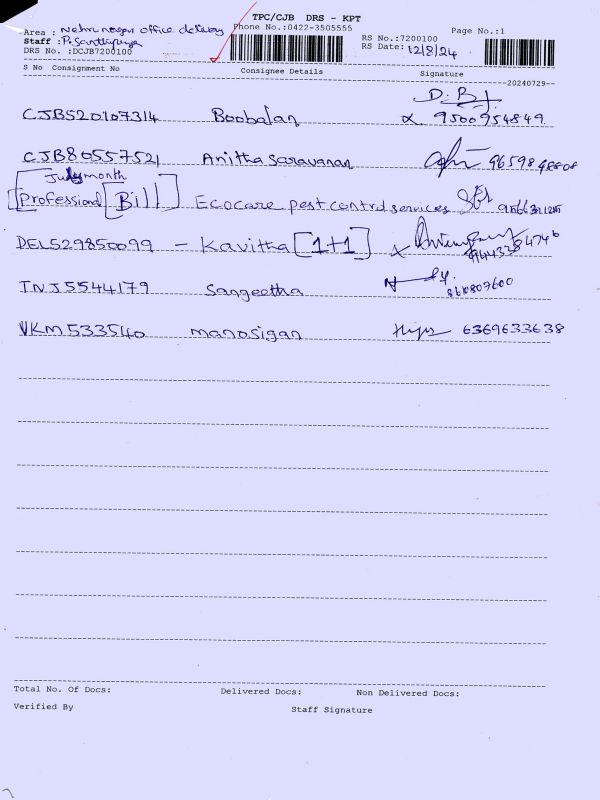 TPC/CJB DRS - KPT
Area : Nehru nagar office delivery Phone No.:0422-3505555 Page No.:1
Staff : P. Santhipriya RS No.:7200100
DRS No. :DCJB7200100 RS Date: 12/8/24
S No Consignment No Consignee Details Signature
--20240729--
CJB520107314 Boobalan D. B 9500954849
CJB80557521 Anitha Saravanan
July month
[Professional [Bill] Ecocare pest control services
DEL529850099 - Kavitha [1+1]
TNJ5544179 Sangeetha
VKM533540 manosigan 6369633638
Total No. Of Docs: Delivered Docs: Non Delivered Docs:
Verified By Staff Signature